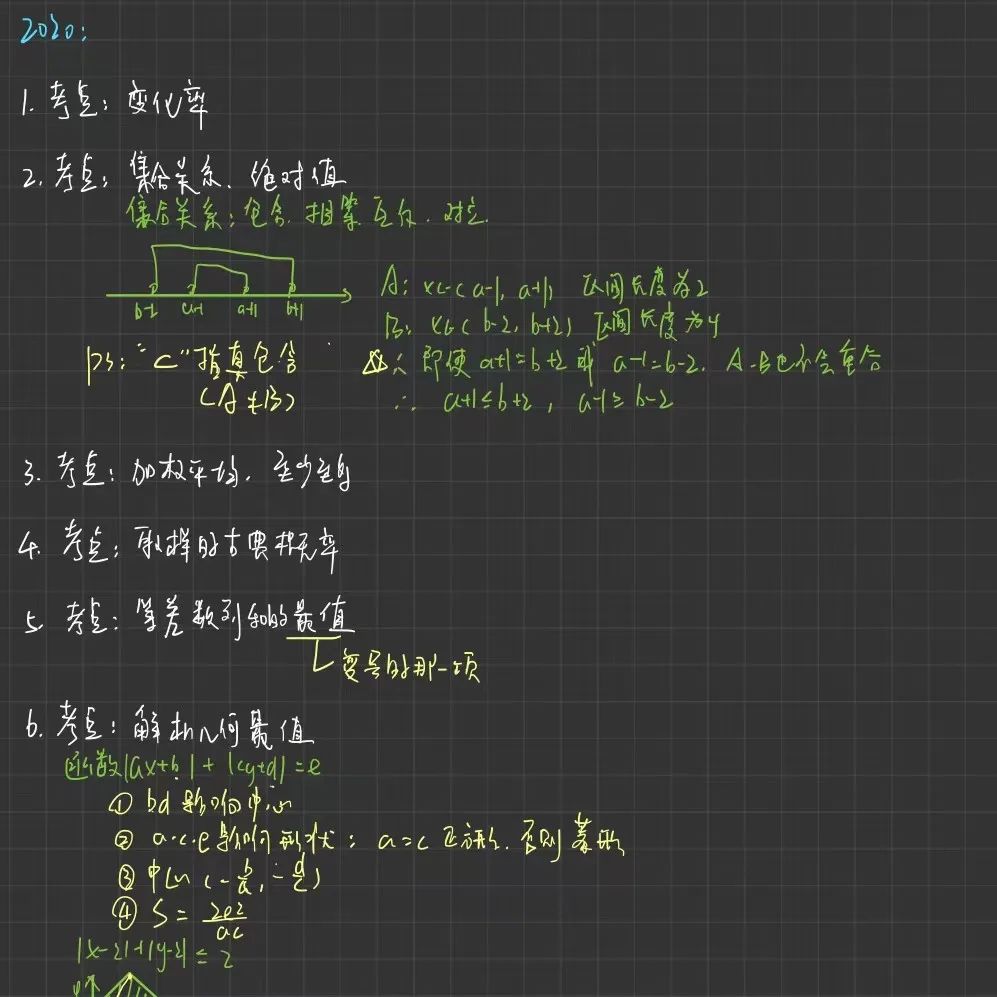 2020:
1. 考点：变化率
2. 考点：集合关系、绝对值
集合关系：包含、相等、互斥、对立
b-2 a-1 a+1 b+1
A: x∈(a-1, a+1) 区间长度为2
B: x∈(b-2, b+2) 区间长度为4
ps: "⊂" 指真包含
(A≠B)
∴ 即使 a+1=b+2 或 a-1=b-2. A、B也不会重合
∴ a+1≤b+2, a-1≥b-2
3. 考点：加权平均、至少至多
4. 考点：取样的古典概率
5. 考点：等差数列和的最值
变号的那一项
6. 考点：解析几何最值
函数|ax+b|+|cy+d|=e
① bd 影响中心
② a.c.e影响形状：a=c 正方形、否则菱形
③ 中心 (-b/a, -d/c)
④ S=2e²/ac
|x-2|+|y-2|≤2
y